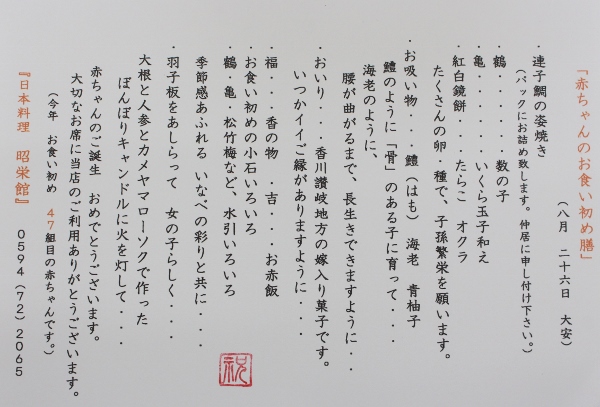 「赤ちゃんのお食い初め膳」
（八月 二十六日 大安）
・連子鯛の姿焼き
（パックにお詰め致します。仲居に申し付け下さい。）
鶴・・・・・・数の子
亀・・・・・いくら玉子和え
紅白鏡餅・・・たらこ オクラ
たくさんの卵・種で、子孫繁栄を願います。
・お吸い物・・・鱧（はも） 海老 青柚子
鱧のように「骨」のある子に育って・・・
海老のように、
腰が曲がるまで、長生きできますように・・・
・おいり・・・香川讃岐地方の嫁入り菓子です。
いつかイイご縁がありますように・・・
・福・・香の物 ・吉・・・お赤飯
・お食い初めの小石いろいろ
・鶴・亀・松竹梅など、水引いろいろ
季節感あふれる いなべの彩りと共に・・・
・羽子板をあしらって 女の子らしく・・・
大根と人参とカメヤマローソクで作った
ぼんぼりキャンドルに火を灯して・・・
赤ちゃんのご誕生 おめでとうございます。
大切なお席に当店のご利用ありがとうございます。
（今年 お食い初め 47組目の赤ちゃんです。）
『日本料理 昭栄館』 0594（72）2065
祝